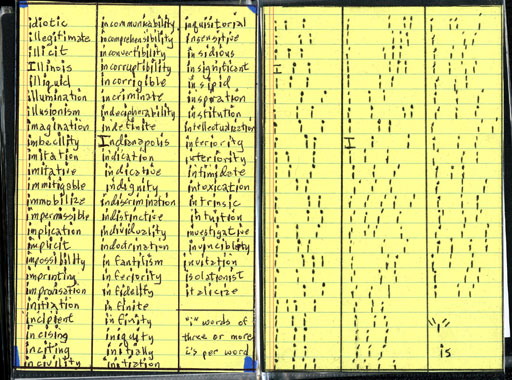 idiotic
illegitimate
illicit
Illinois
illiquid
illumination
illusionism
imagination
imbecility
imitation
imitative
immitigable
immobilize
impermissible
implication
implicit
impossibility
imprinting
improvisation
initiation
incipient
incising
inciting
incivility
incommunicability
incomprehensibility
inconvertibility
incorruptibility
incorrigible
incriminate
indecipherability
indefinite
Indianapolis
indication
indicative
indignity
indiscrimination
indistinctive
individuality
indoctrination
infantilism
inferiority
infidelity
infinite
infinity
iniquity
initially
initiation
inquisitorial
insensitive
insidious
insignificant
insipid
inspiration
institution
intellectualization
interiority
interiority
intimidate
intoxication
intrinsic
intuition
investigative
invincibility
invitation
isolationist
italicize
"i" words of
three or more
i's per word
I
I
"i"
is